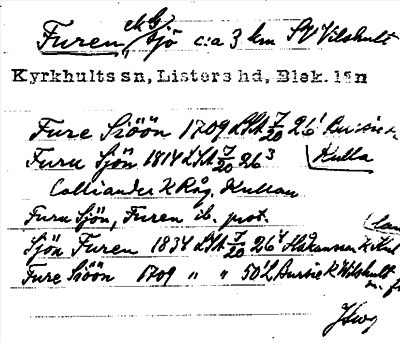 Furen, sjö c:a 3 km SV Vilshult
Kyrkhults sn, Listers hd, Blek. län
Fure Siöön 1709 LSA 7/20 26¹
Furu Sjön 1814 LSA 7/20 26³ Kulla
Calliander K Råg. Kullan
Furu Sjön, Furen ib. prot.
Sjön Furen 1834 LSA 7/20 26⁴ Håkansson K
Fure Siöön 1709 " " 50¹ K Vilshult